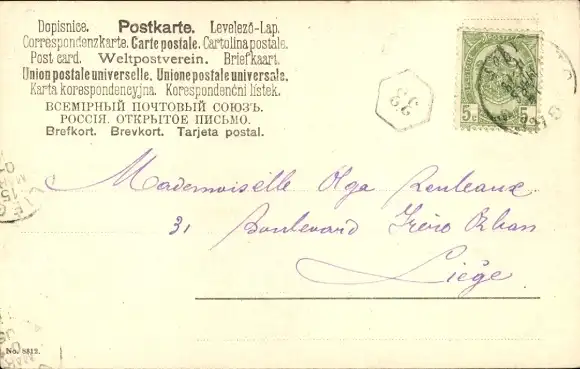 Dopisnice. Postkarte. Levelező-Lap.
Correspondenzkarte. Carte postale. Cartolina postale.
Post card. Weltpostverein. Briefkaart.
Union postale universelle. Unione postale universale.
Karta korespondencyjna. Korespondenční lístek.
ВСЕМІРНЫЙ ПОЧТОВЫЙ СОЮЗЪ.
РОССІЯ. ОТКРЫТОЕ ПИСЬМО.
Brefkort. Brevkort. Tarjeta postal.
5c 5c
Mademoiselle Olga
31 Boulevard Frère Orban
Liège
No. 8812.